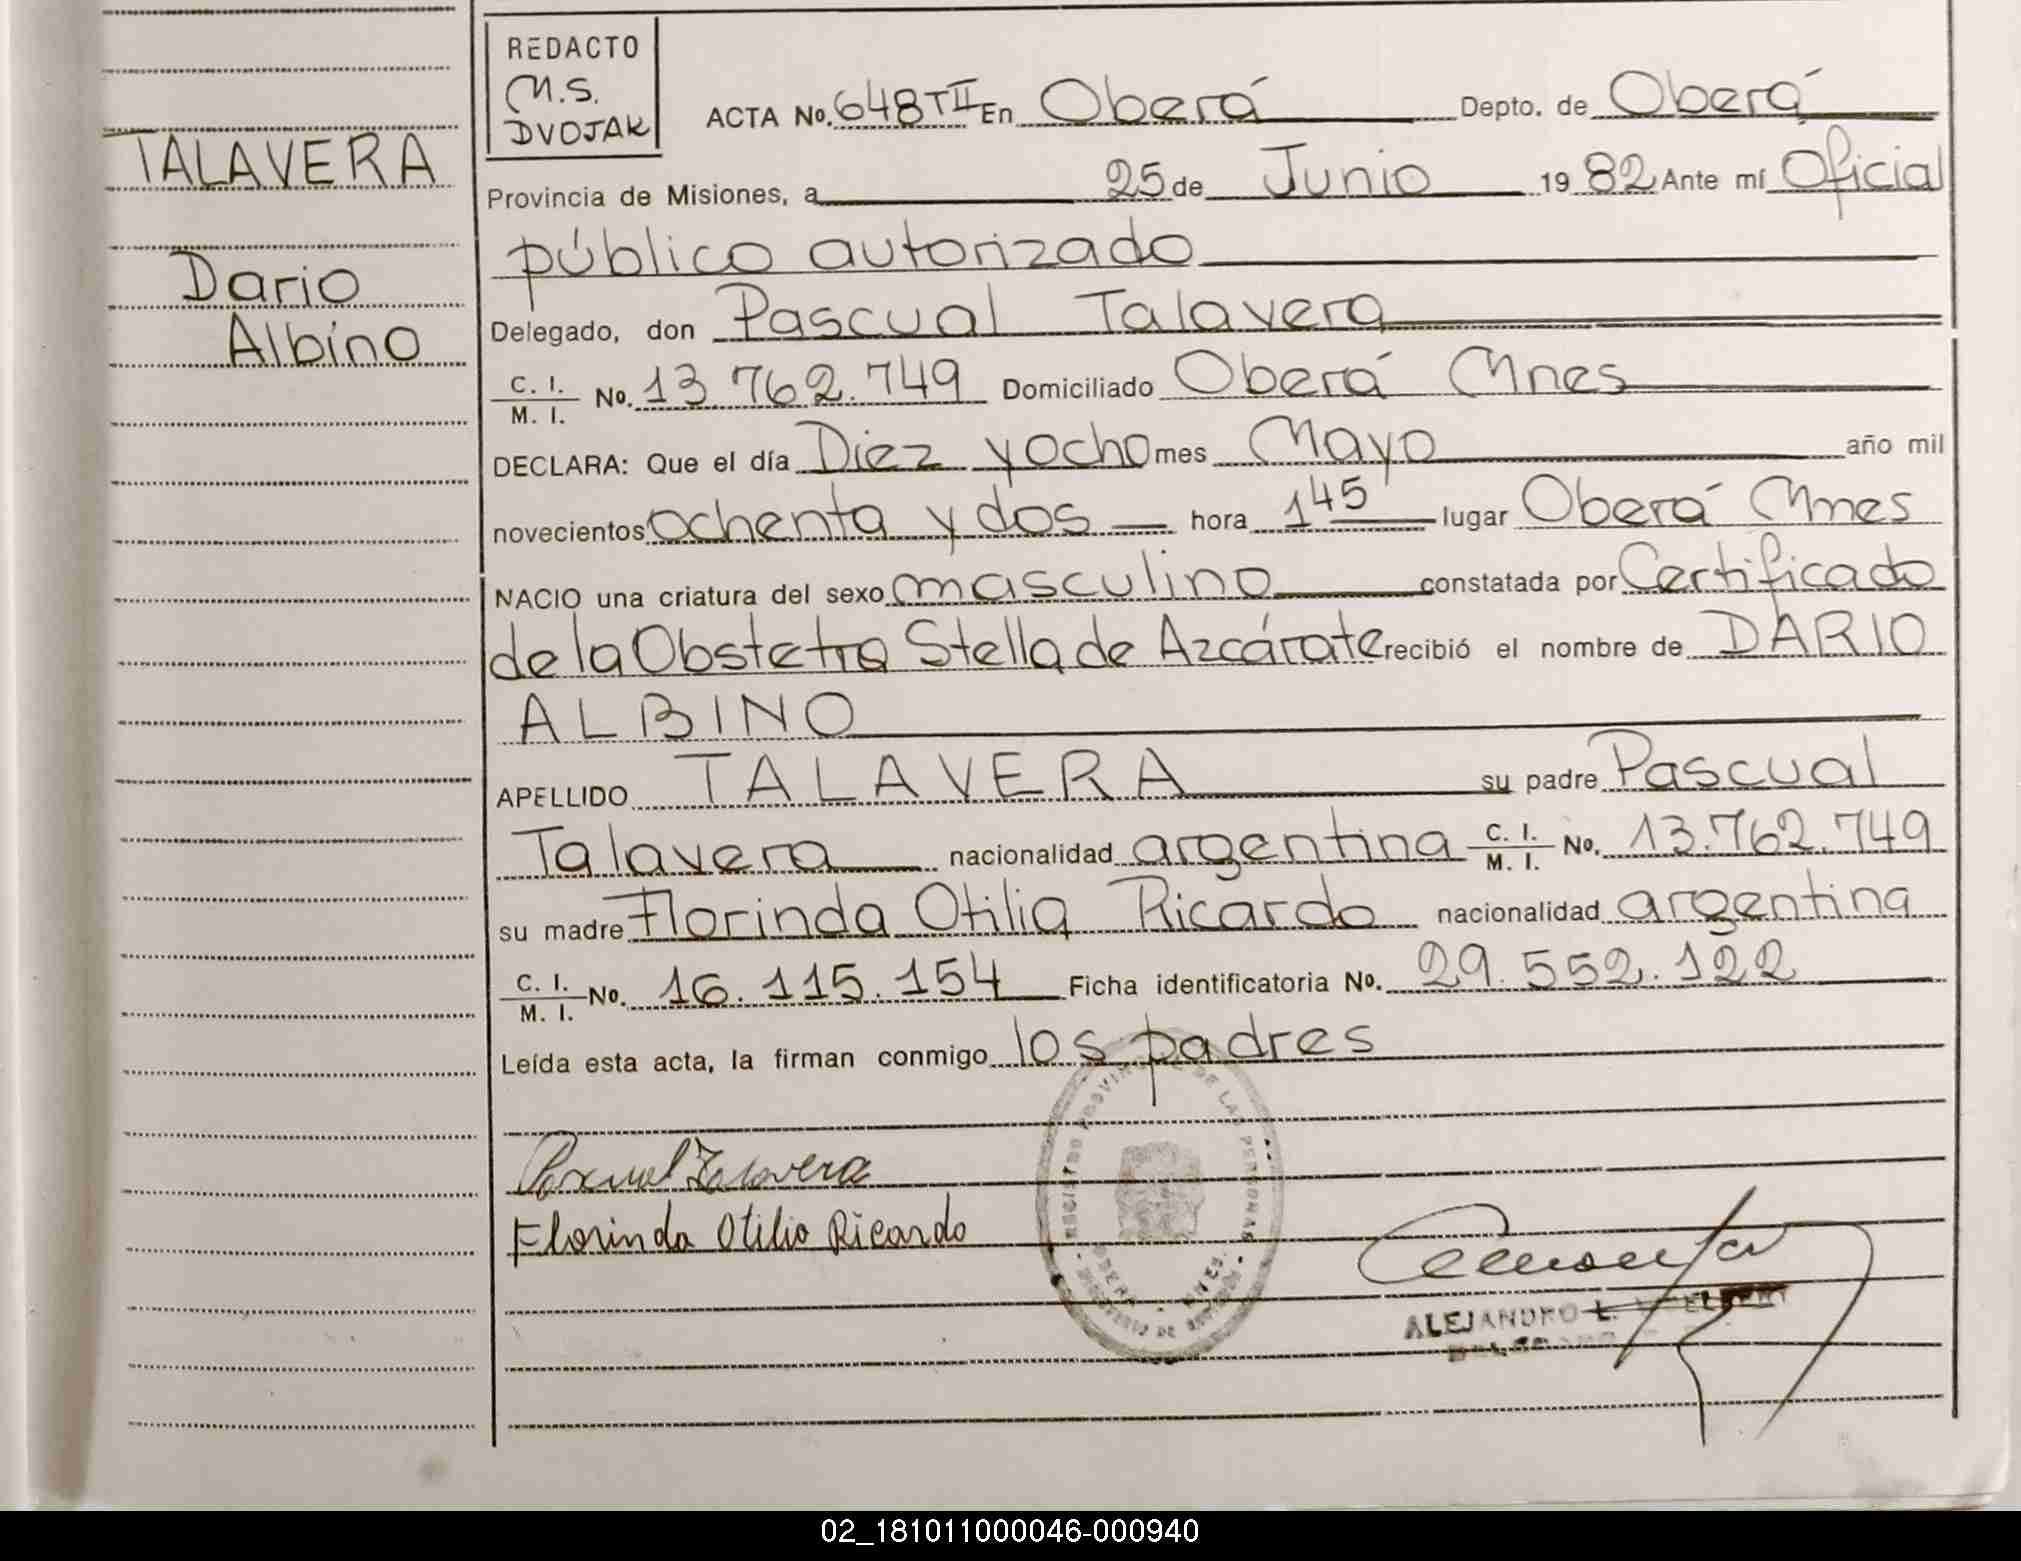 REDACTO
M.S.
DVOJAK
ACTA No. 648 T II En Oberá Depto. de Oberá
Provincia de Misiones, a 25 de Junio 19 82 Ante mí Oficial
público autorizado
Delegado, don Pascual Talavera
C. I.
M. I. No. 13.762.749 Domiciliado Oberá Mnes
DECLARA: Que el día Diez y ocho mes Mayo año mil
novecientos ochenta y dos hora 1 45 lugar Oberá Mnes
NACIO una criatura del sexo masculino constatada por Certificado
de la Obstetra Stella de Azcárate recibió el nombre de DARIO
ALBINO
APELLIDO TALAVERA su padre Pascual
Talavera nacionalidad argentina C. I. M. I. No. 13.762.749
su madre Florinda Otilia Ricardo nacionalidad argentina
C. I. M. I. No. 16.115.154 Ficha identificatoria No. 29.552.122
Leída esta acta, la firman conmigo los padres
Pascual Talavera
Florinda Otilia Ricardo
ALEJANDRO L.
TALAVERA
Dario
Albino
REGISTRO PROVINCIAL DE LAS PERSONAS
OBERA - MNES.
02_181011000046-000940